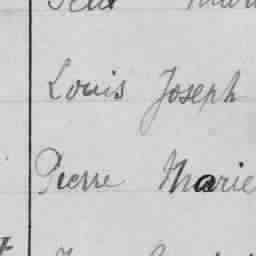 Louis Joseph
Pierre Marie